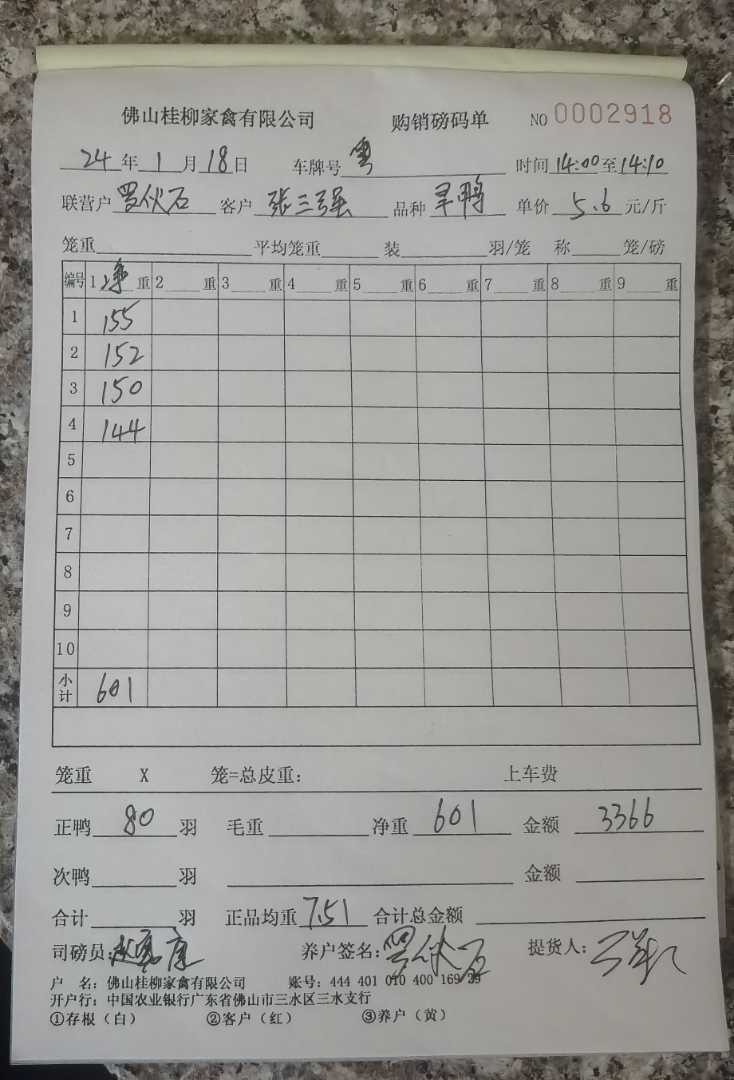 佛山桂柳家禽有限公司 购销磅码单 NO 0002918
24年1月18日 车牌号 粤 时间14:00至14:10
联营户 罗伙石 客户 张三强 品种 旱鸭 单价 5.6 元/斤
笼重 平均笼重 装 羽/笼 称 笼/磅
编号 1净重 2 重 3 重 4 重 5 重 6 重 7 重 8 重 9 重
1 155
2 152
3 150
4 144
5
6
7
8
9
10
小计 601
笼重 X 笼=总皮重: 上车费
正鸭 80 羽 毛重 净重 601 金额 3366
次鸭 羽 金额
合计 羽 正品均重 7.51 合计总金额
司磅员: 养户签名: 罗伙石 提货人:
户 名: 佛山桂柳家禽有限公司 账号: 444 401 010 400 169 29
开户行: 中国农业银行广东省佛山市三水区三水支行
①存根（白） ②客户（红） ③养户（黄）